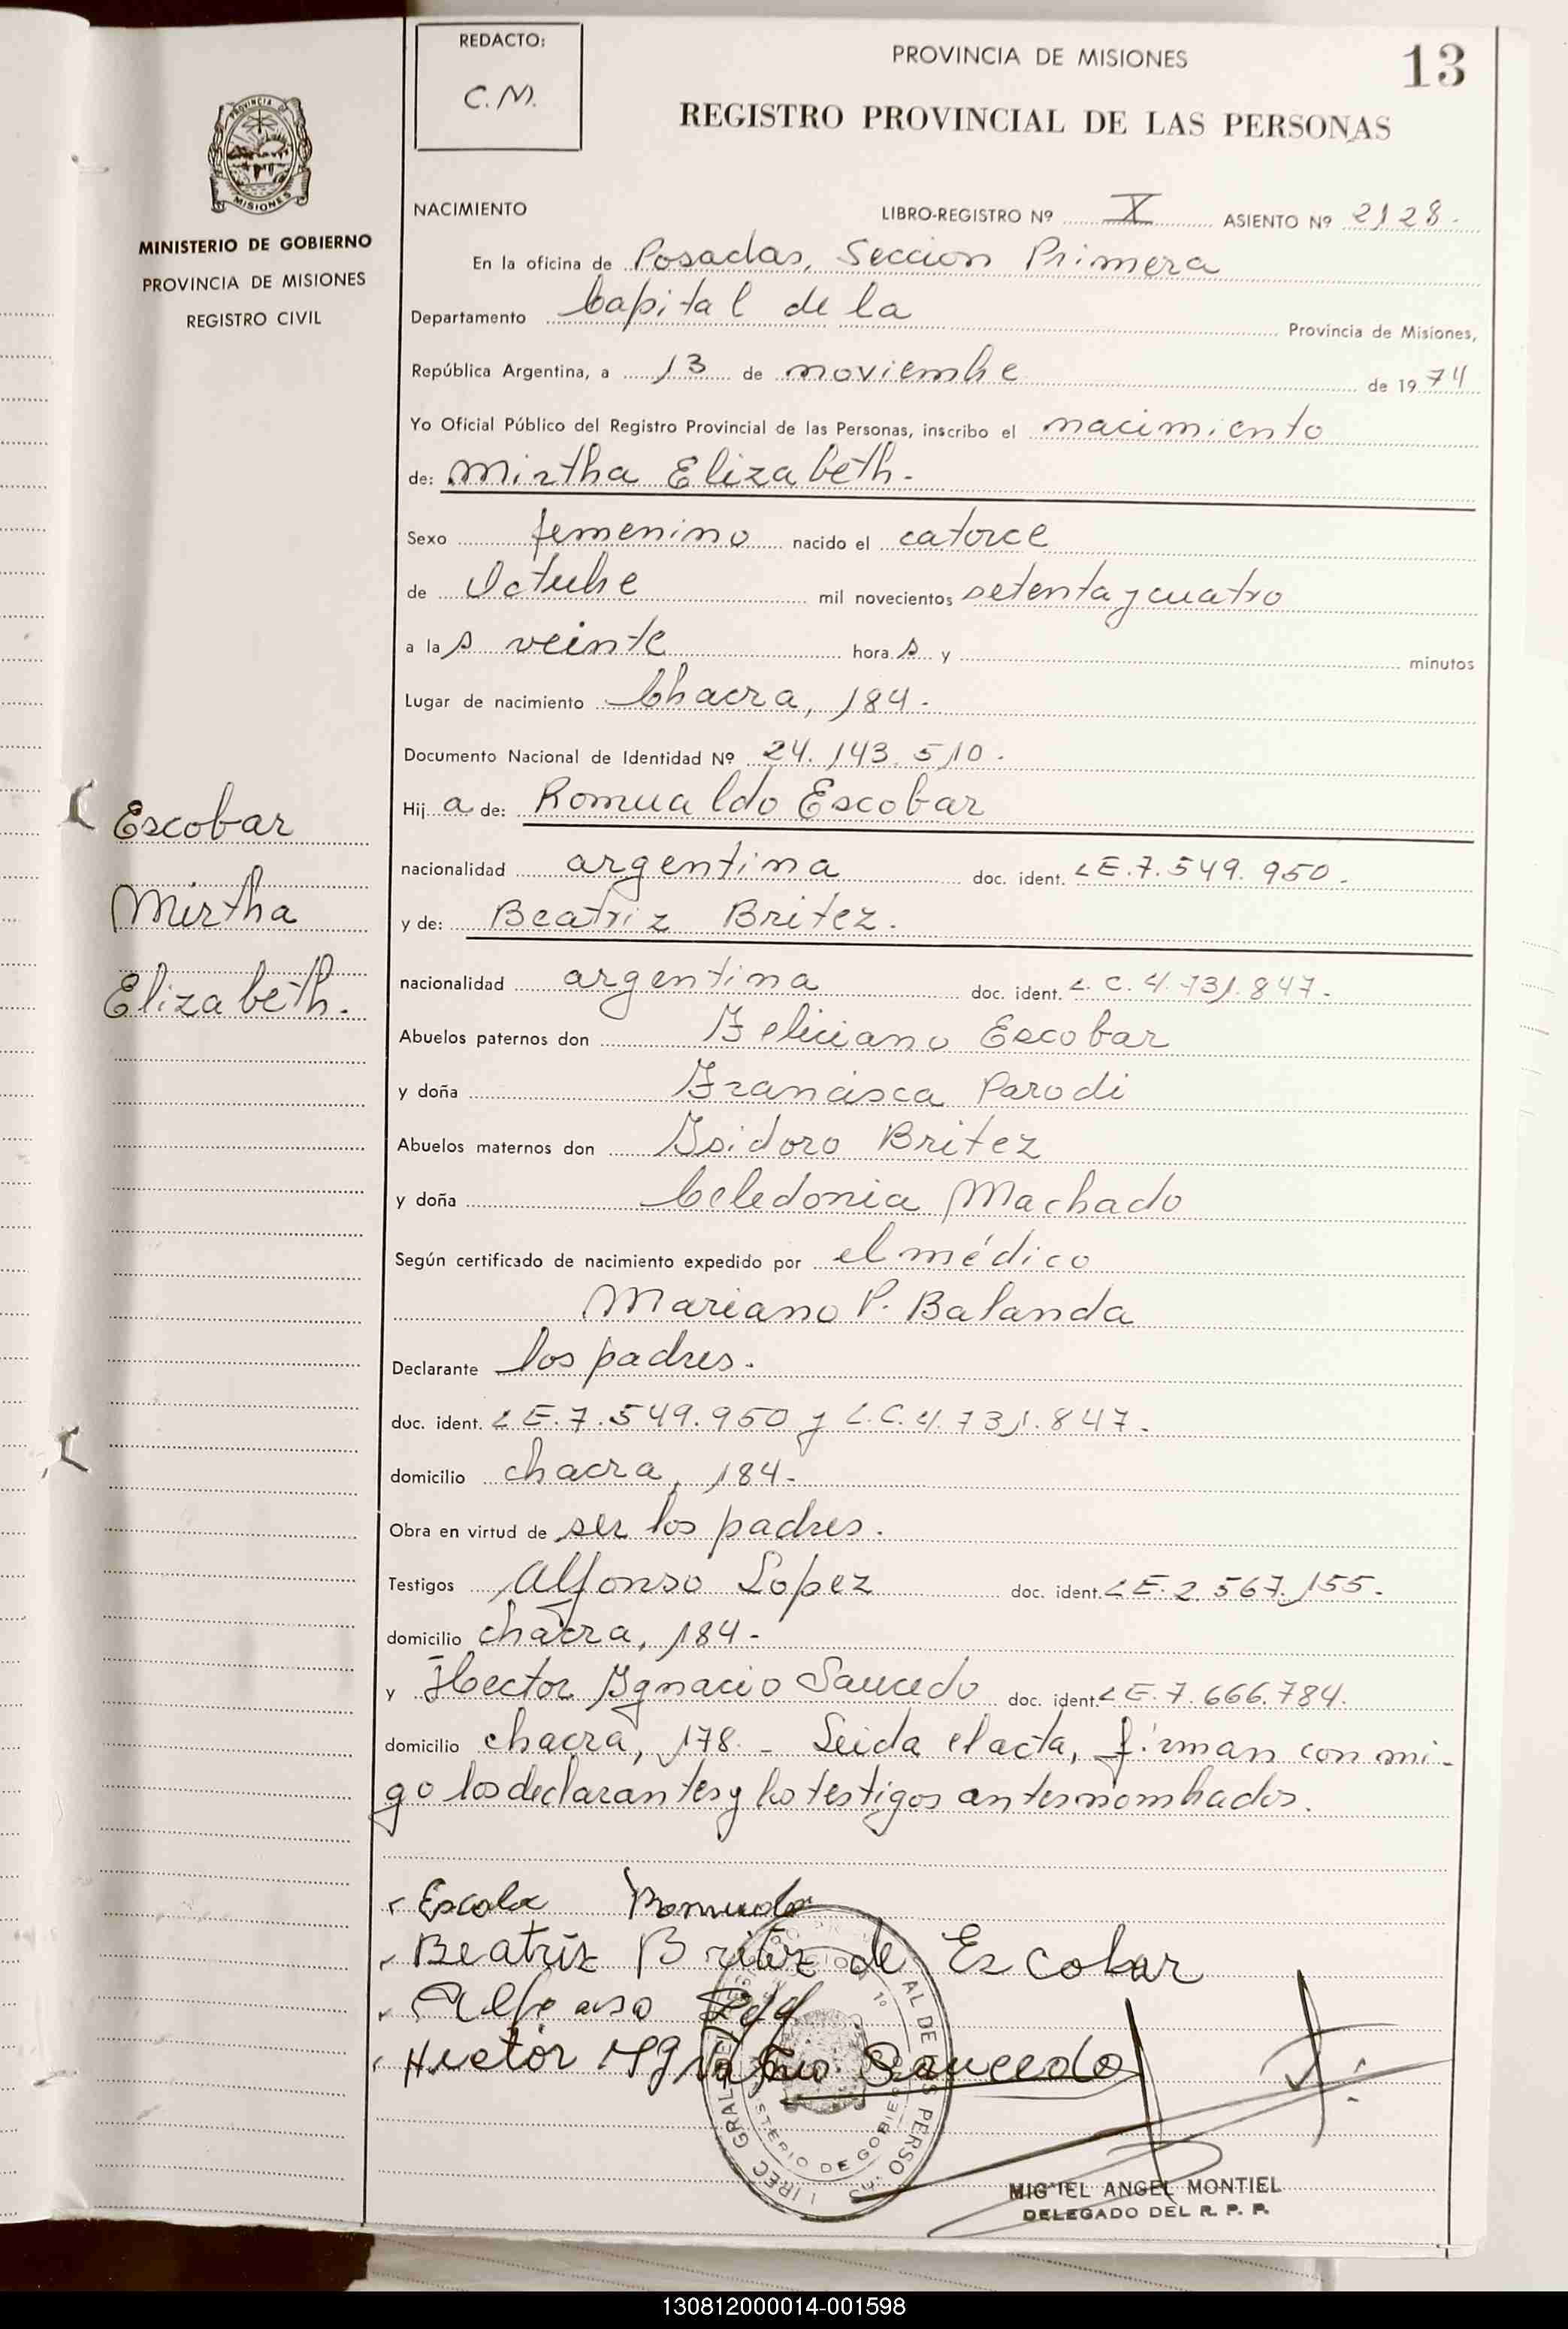 REDACTO:
C.M.
PROVINCIA DE MISIONES
13
REGISTRO PROVINCIAL DE LAS PERSONAS
PROVINCIA DE
MISIONES
MINISTERIO DE GOBIERNO
PROVINCIA DE MISIONES
REGISTRO CIVIL
NACIMIENTO LIBRO-REGISTRO Nº X ASIENTO Nº 2128.
En la oficina de Posadas, Seccion Primera
Departamento Capital de la Provincia de Misiones,
República Argentina, a 13 de noviembre de 1974
Yo Oficial Público del Registro Provincial de las Personas, inscribo el nacimiento
de: Mirtha Elizabeth.
Sexo femenino nacido el catorce
de Octubre mil novecientos setenta y cuatro
a las veinte horas y minutos
Lugar de nacimiento Chacra, 184.
Documento Nacional de Identidad Nº 24.143.510.
Hija de: Romualdo Escobar
nacionalidad argentina doc. ident. LE.7.549.950.
y de: Beatriz Britez.
nacionalidad argentina doc. ident. L.C.4.731.847.
Abuelos paternos don Feliciano Escobar
y doña Francisca Parodi
Abuelos maternos don Isidoro Britez
y doña Celedonia Machado
Según certificado de nacimiento expedido por el médico
Mariano P. Balanda
Declarante los padres.
doc. ident. LE.7.549.950 y L.C.4.731.847.
domicilio chacra, 184-
Obra en virtud de ser los padres.
Testigos Alfonso Lopez doc. ident. LE.2.567.155.
domicilio chacra, 184-
y Hector Ignacio Saucedo doc. ident. LE.7.666.784.
domicilio chacra, 178. - Leida el acta, firman con mi-
go los declarantes y los testigos antes nombrados.
Escobar
Mirtha
Elizabeth.
Beatriz Britez de Escobar
Alfonso
Hector Saucedo
MIGUEL ANGEL MONTIEL
DELEGADO DEL R. P. P.
130812000014-001598